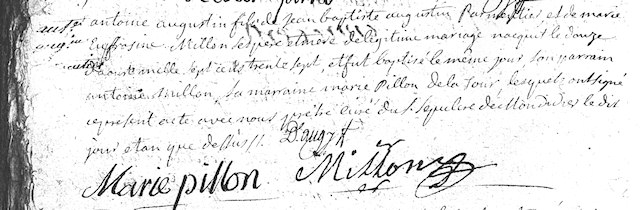 antoine augustin fils de Jean baptiste augustin Parmentier, et de marie
Eufrosine Millon ses pere et mere de legitime mariage nacquit le douze
d'aoust mille sept cens trente sept, et fut baptisé le même jour, son parrain
antoine millon, sa marraine marie Pillon de la tour, lesquels ont signé
ce present acte avec nous prêtre curé du st. sepulcre de Mondidier le dit
jour et an que dessus.
Daugy
Marie pillon Millon